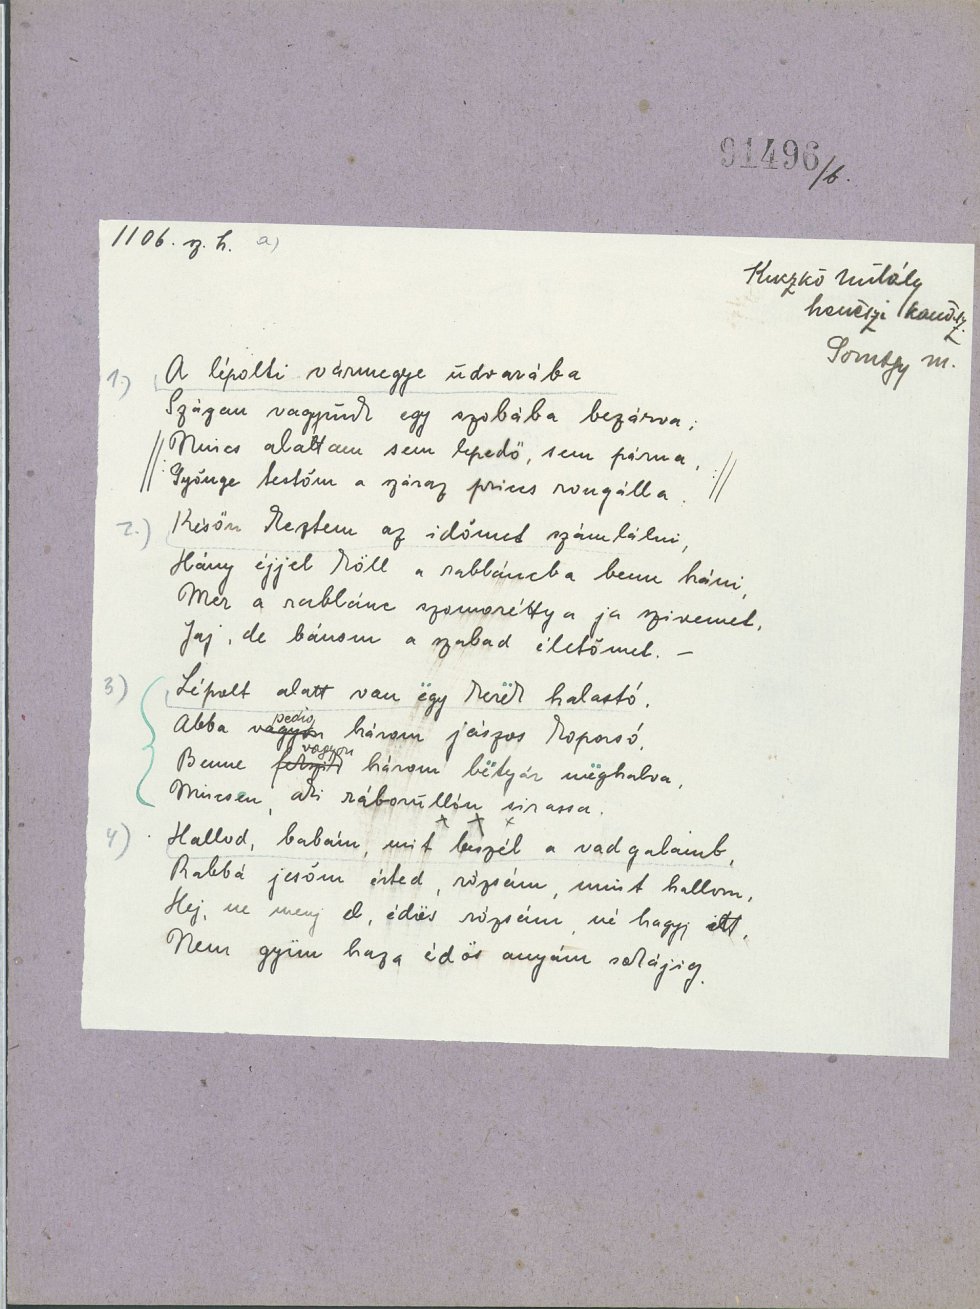 91496/b.
1106. sz. h. a)
Kuczkó Mihály
kanász
Somogy m.
1.) A lépolti vármegye údvarába
Szágan vagyúnk egy szobába bezárva;
// Nincs alattam sem lepedő, sem párna,
Gyönge testöm a száraz prics rongálla. //
2.) Későn keztem az időmet számlálni,
Hány éjjel köll a rabláncba benn háni,
Mer a rablánc szomoréttya ja szivemet,
Jaj, de bánom a szabad életömet. —
3) Lépolt alatt van ëgy kerëk halastó,
Abba vagyon pedig három jászos koporsó,
Benne fekszik vagyon három bëtyár mëghalva,
Nincsen, aki ráborúllón sirassa.
4) Hallod, babám, mit beszél a vad galamb,
Rabbá jesőm érted, rózsám, mint hallom,
Hej, ne menj el, édös rózsám, né hagyj itt,
Nem gyün haza édös anyám sokájig.